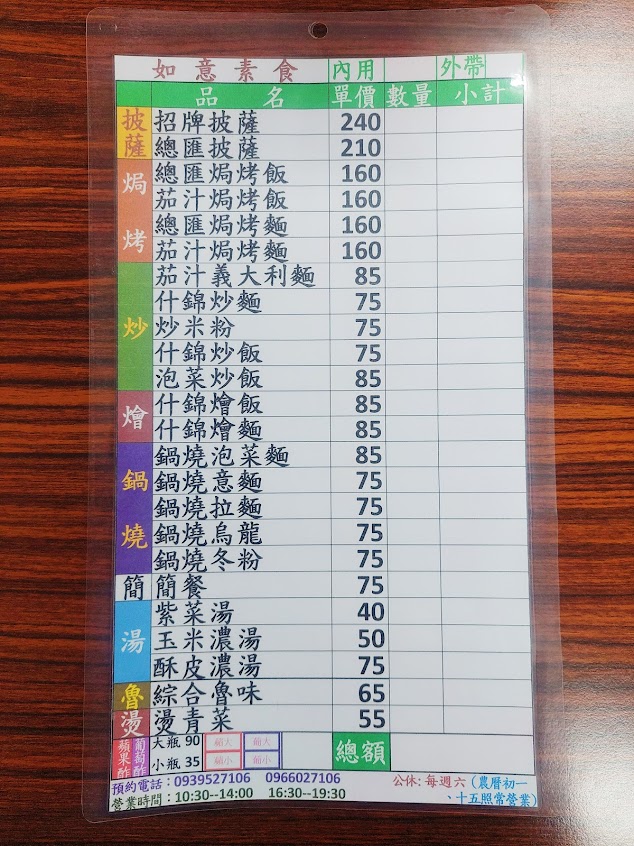 如意素食 內用 外帶
品名 單價 數量 小計
披薩 招牌披薩 240
總匯披薩 210
焗烤 總匯焗烤飯 160
茄汁焗烤飯 160
總匯焗烤麵 160
茄汁焗烤麵 160
炒 茄汁義大利麵 85
什錦炒麵 75
炒米粉 75
什錦炒飯 75
泡菜炒飯 85
燴 什錦燴飯 85
什錦燴麵 85
鍋燒 鍋燒泡菜麵 85
鍋燒意麵 75
鍋燒拉麵 75
鍋燒烏龍 75
鍋燒冬粉 75
簡 簡餐 75
湯 紫菜湯 40
玉米濃湯 50
酥皮濃湯 75
魯 綜合魯味 65
燙 燙青菜 55
蘋果醋 葡萄醋 大瓶 90 蘋大 葡大 總額
小瓶 35 蘋小 葡小
預約電話：0939527106 0966027106 公休: 每週六 (農曆初一
營業時間：10:30--14:00 16:30--19:30 、十五照常營業)